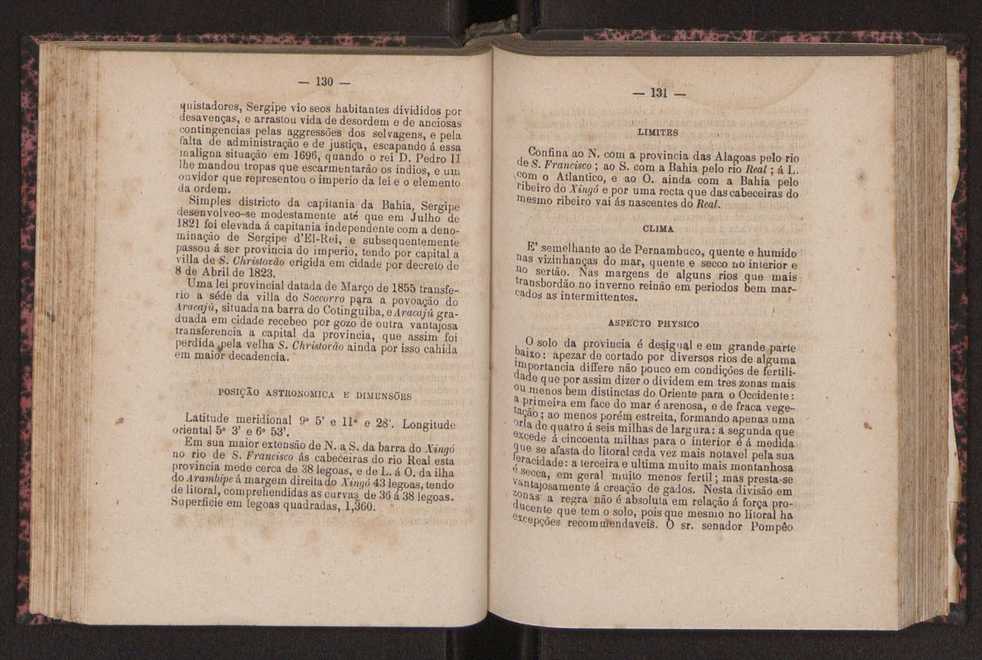 — 130 —
quistadores, Sergipe vio seos habitantes divididos por
desavenças, e arrastou vida de desordem e de anciosas
contingencias pelas aggressões dos selvagens, e pela
falta de administração e de justiça, escapando á essa
maligna situação em 1696, quando o rei D. Pedro II
lhe mandou tropas que escarmentarão os indios, e um
ouvidor que representou o imperio da lei e o elemento
da ordem.
Simples districto da capitania da Bahia, Sergipe
desenvolveo-se modestamente até que em Julho de
1821 foi elevada á capitania independente com a deno-
minação de Sergipe d'El-Rei, e subsequentemente
passou á ser provincia do imperio, tendo por capital a
villa de S. Christovão erigida em cidade por decreto de
8 de Abril de 1823.
Uma lei provincial datada de Março de 1855 transfe-
rio a séde da villa do Soccorro para a povoação do
Aracajú, situada na barra do Cotinguiba, e Aracajú gra-
duada em cidade recebeo por gozo de outra vantajosa
transferencia a capital da provincia, que assim foi
perdida pela velha S. Christovão ainda por isso cahida
em maior decadencia.
POSIÇÃO ASTRONOMICA E DIMENSÕES
Latitude meridional 9º 5' e 11º e 28'. Longitude
oriental 5º 3' e 6º 53'.
Em sua maior extensão de N. a S. da barra do Xingó
no rio de S. Francisco ás cabeceiras do rio Real esta
provincia mede cerca de 38 legoas, e de L. á O. da ilha
do Arambipe á margem direita do Xingó 43 legoas, tendo
de litoral, comprehendidas as curvas de 36 á 38 legoas.
Superficie em legoas quadradas, 1,360.
— 131 —
LIMITES
Confina ao N. com a provincia das Alagoas pelo rio
de S. Francisco; ao S. com a Bahia pelo rio Real; á L.
com o Atlantico, e ao O. ainda com a Bahia pelo
ribeiro do Xingó e por uma recta que das cabeceiras do
mesmo ribeiro vai ás nascentes do Real.
CLIMA
E' semelhante ao de Pernambuco, quente e humido
nas vizinhanças do mar, quente e secco no interior e
no sertão. Nas margens de alguns rios que mais
transbordão no inverno reinão em periodos bem mar-
cados as intermittentes.
ASPECTO PHYSICO
O solo da provincia é desigual e em grande parte
baixo: apezar de cortado por diversos rios de alguma
importancia differe não pouco em condições de fertili-
dade que por assim dizer o dividem em tres zonas mais
ou menos bem distinctas do Oriente para o Occidente:
a primeira em face do mar é arenosa, e de fraca vege-
tação; ao menos porém estreita, formando apenas uma
orla de quatro á seis milhas de largura: a segunda que
excede á cincoenta milhas para o interior é á medida
que se afasta do litoral cada vez mais notavel pela sua
feracidade: a terceira e ultima muito mais montanhosa
é secca, em geral muito menos fertil; mas presta-se
vantajosamente á creação de gados. Nesta divisão em
zonas a regra não é absoluta em relação á força pro-
ducente que tem o solo, pois que mesmo no litoral ha
excepções recommendaveis. O sr. senador Pompêo